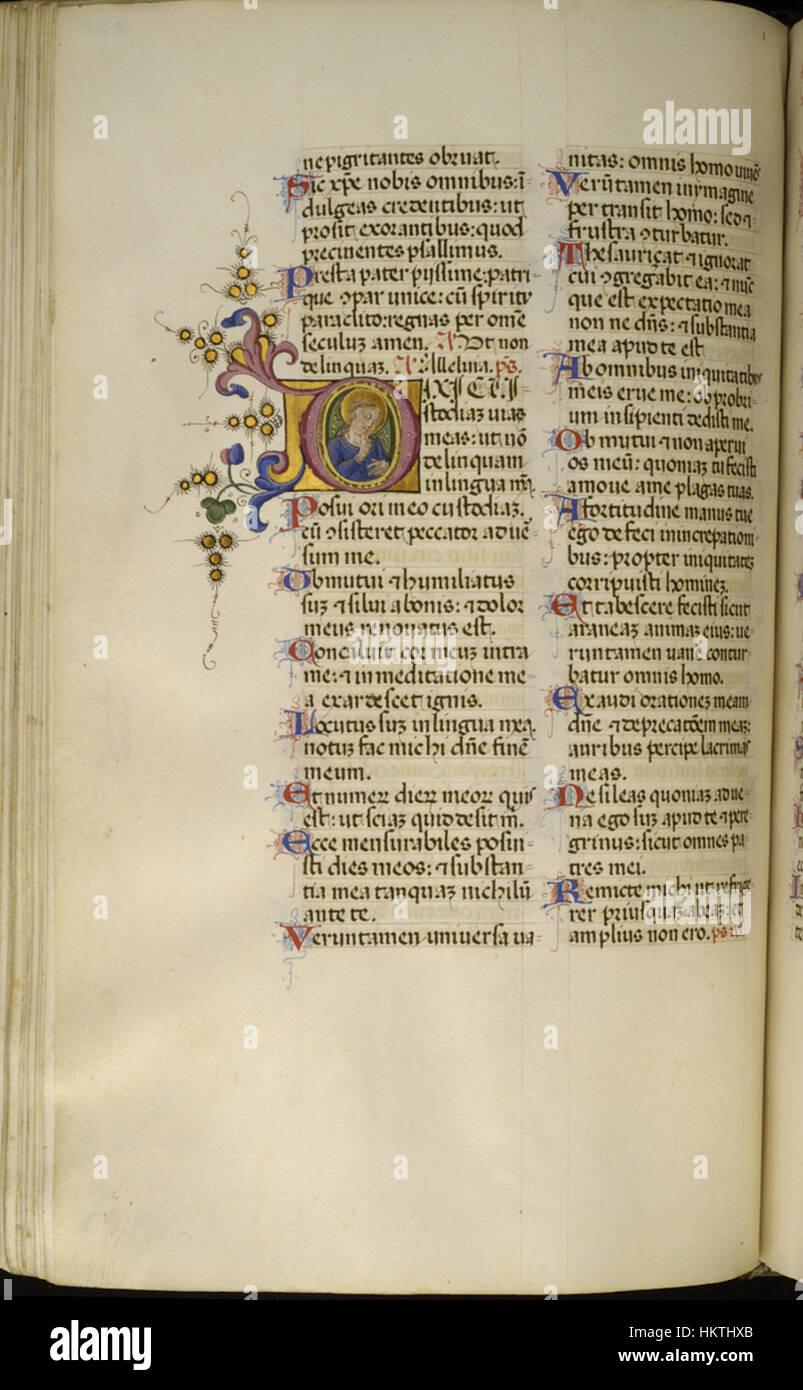 ne pigritantes obruat.
Sic xp̄e nobis omnibus: ī
dulgeas credentibus: ut
prosit exorantibus: quod
precinentes psallimus.
Presta pater pijssime: patri
que ꝯpar unice: cū spiritu
paraclito: regnas per om̄e
seculuꝫ amen. A Ut non
delinquaꝫ. A Alleluia. ps.
DIXI CUS
stodiaꝫ uias
meas: ut nō
delinquam
in lingua m̄a.
Posui ori meo custodiaꝫ.
cū ꝯsisteret peccator aduē
sum me.
Obmutui ⁊ humiliatus
suꝫ ⁊ silui a bonis: ⁊ dolor
meus renouatus est.
Concaluit cor meuꝫ intra
me: ⁊ in meditatione me
a exardescet ignis.
Locutus suꝫ in lingua mea.
notuꝫ fac michi dn̄e finē
meum.
Et numeꝝ dieꝝ meoꝝ quis
est: ut sciaꝫ quid desit m̄.
Ecce mensurabiles posui
sti dies meos: ⁊ substan
tia mea tanquaꝫ nichilū
ante te.
Veruntamen uniuersa ua
nitas: omnis homo
Verūtamen in ymagine
per transit homo: sed ⁊
frustra ꝯturbatur.
Thesauriçat ⁊ ignorat
cui ꝯgregabit ea: ⁊ nūc
que est expectatio mea
non ne dn̄s: ⁊ substantia
mea apud te est
Ab omnibus iniquitatibꝫ
meis erue me: obprobri
um insipienti dedisti me.
Obmutui ⁊ non aperui
os meū: quoniaꝫ tu fecisti
amoue a me plagas tuas.
A fortitudine manus tue
ego defeci in increpationi
bus: propter iniquitateꝫ
corripuisti hominem.
Et tabescere fecisti sicut
araneaꝫ animaꝫ eius: ue
runtamen uane contur
batur omnis homo.
Exaudi orationeꝫ meam
dn̄e ⁊ deprecatōem meaꝫ:
auribus percipe lacrimas
meas.
Ne sileas quoniaꝫ adue
na ego suꝫ apud te ⁊ pere
grinus: sicut omnes pa
tres mei.
Remicte michi ut refrige
rer priusquaꝫ abeaꝫ: et
amplius non ero. ps
a alamy stock photo
alamy
Image ID: HKTHXB
www.alamy.com